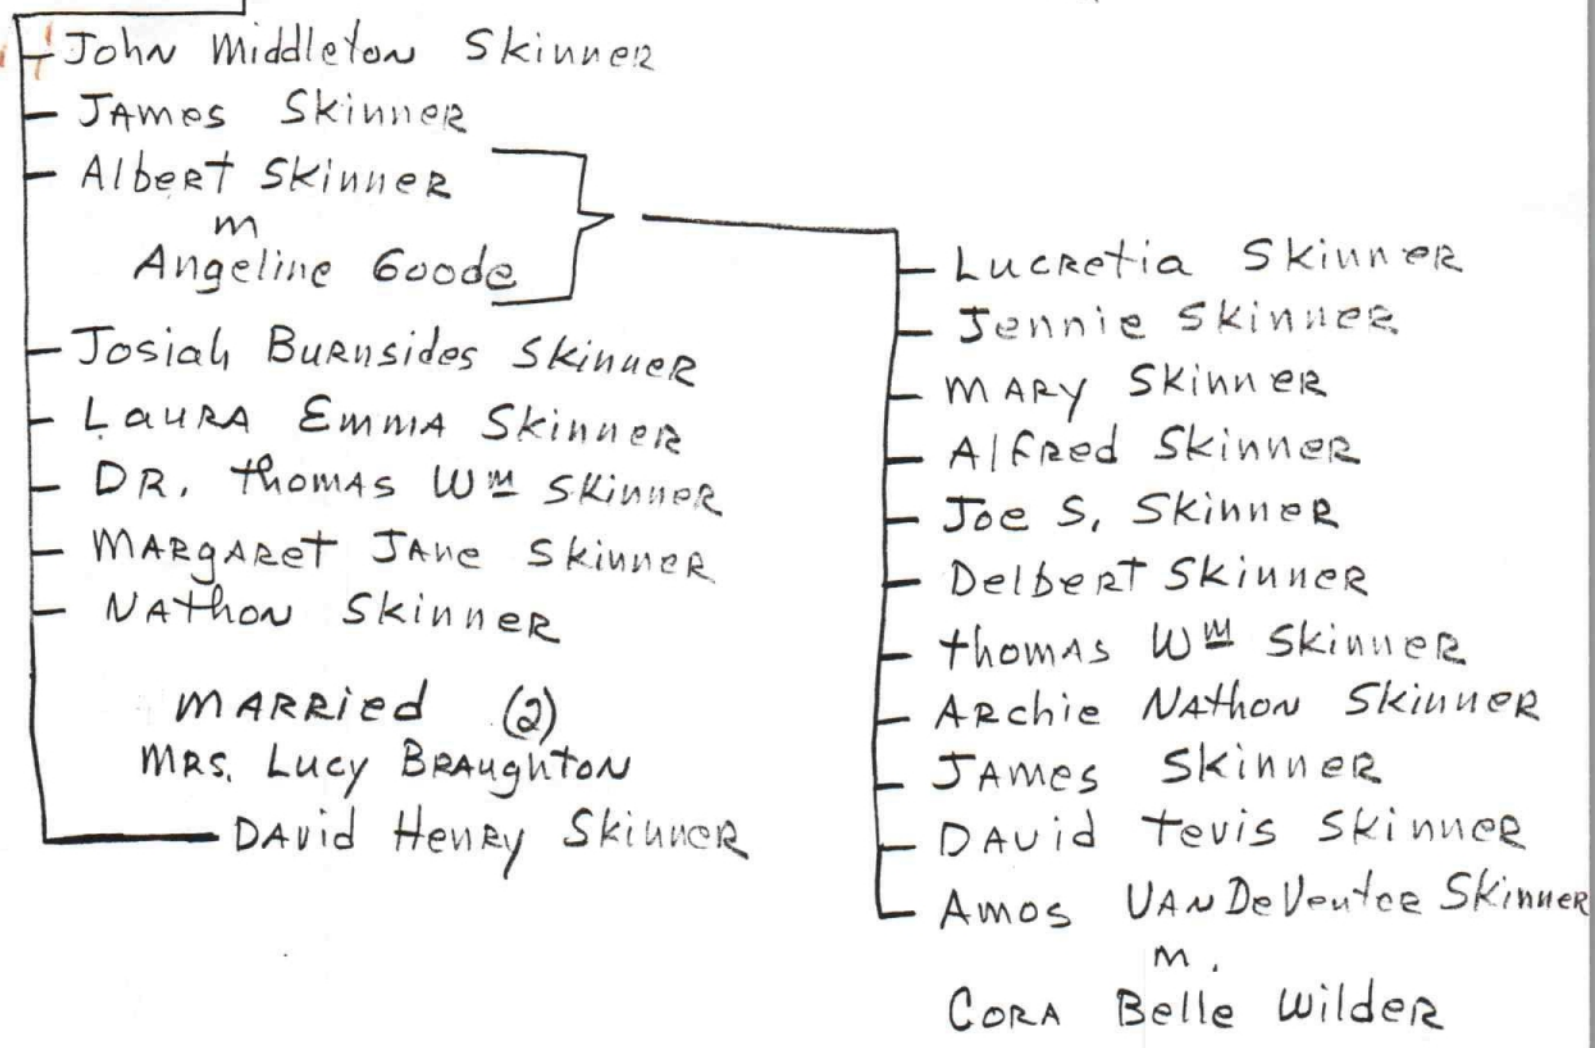 John Middleton Skinner
James Skinner
Albert Skinner
m
Angeline Goode
Josiah Burnsides Skinner
Laura Emma Skinner
DR. Thomas Wm Skinner
Margaret Jane Skinner
Nathon Skinner
Married (2)
Mrs. Lucy Braughton
David Henry Skinner
Lucretia Skinner
Jennie Skinner
Mary Skinner
Alfred Skinner
Joe S. Skinner
Delbert Skinner
Thomas Wm Skinner
Archie Nathon Skinner
James Skinner
David Tevis Skinner
Amos VanDeVenter Skinner
m.
Cora Belle Wilder